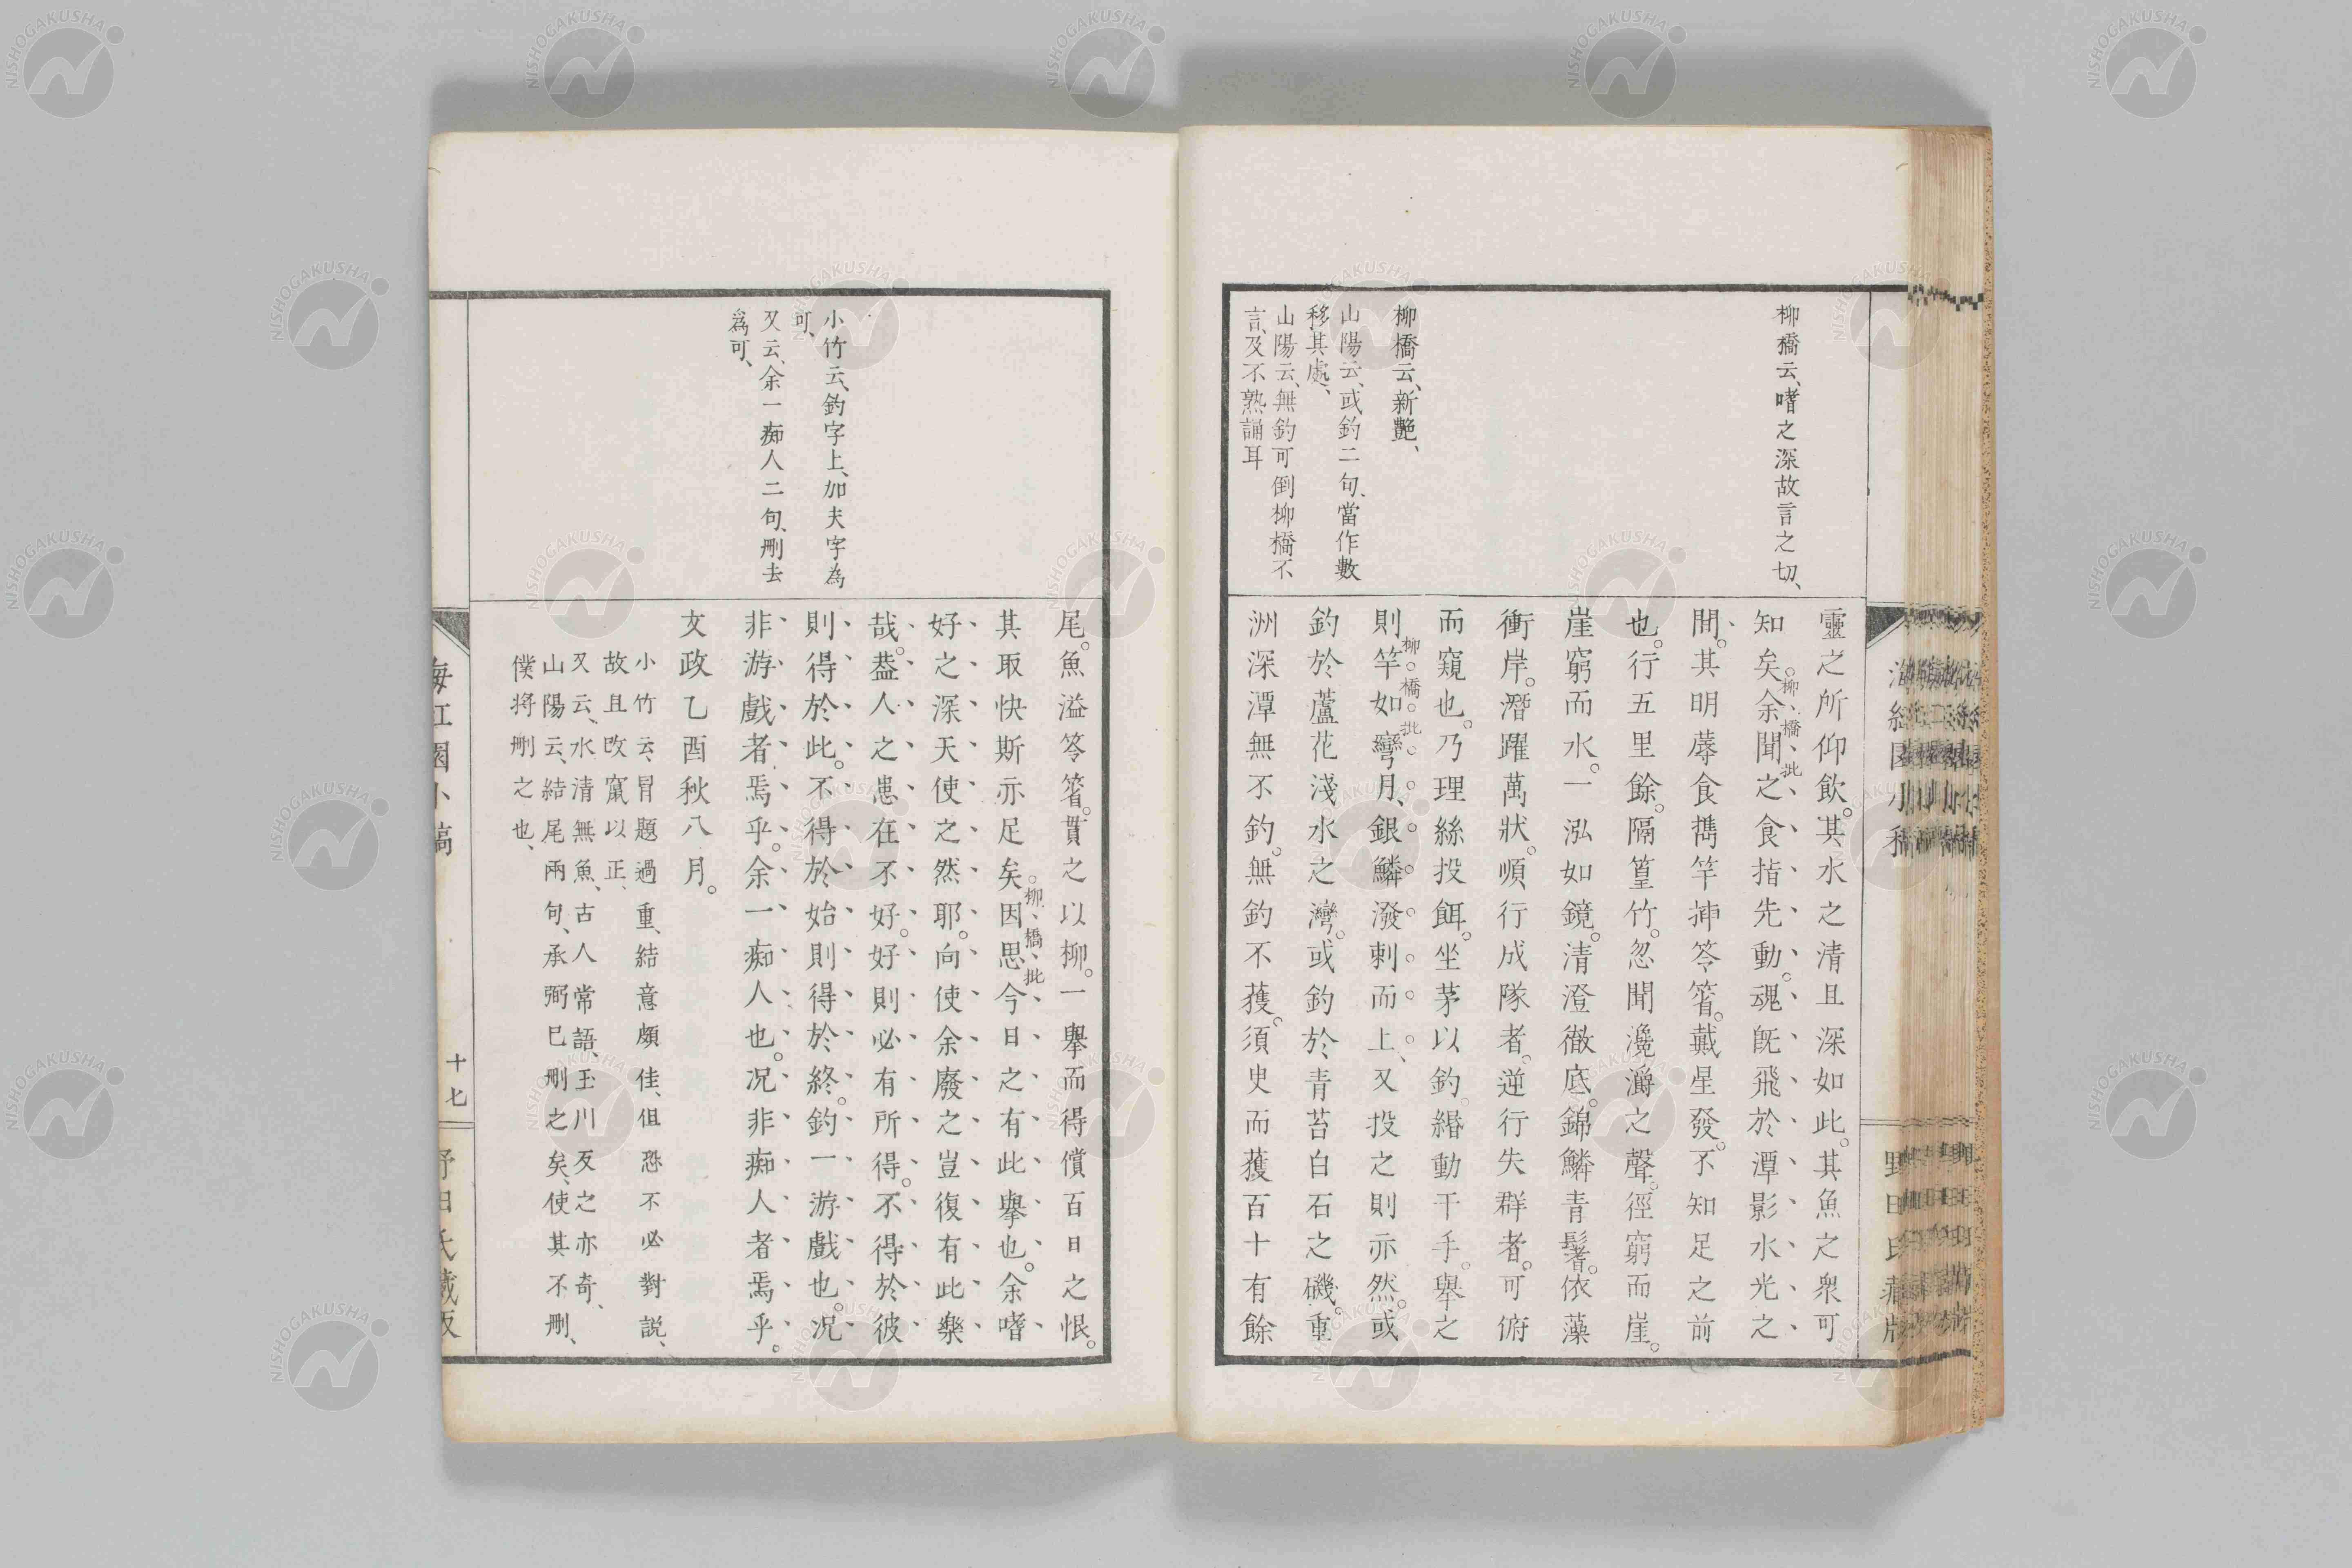 柳橋云、嗜之深故言之切、
柳橋云、新艶、
山陽云、或釣二句、當作數
移其處、
山陽云、無釣可倒柳橋不
言、及不熟誦耳
靈之所仰飲。其水之清且深如此。其魚之衆可
知矣。余聞之食指先動。魂既飛於潭影水光之
柳橋批
間。其明蓐食携竿挿笭箵。戴星發。不知足之前
也。行五里餘。隔篁竹。忽聞瀺灂之聲。徑窮而崖。
崖窮而水。一泓如鏡。清澄徹底。錦鱗青鬐。依藻
衝岸。潛躍萬狀。順行成隊者。逆行失群者。可俯
而窺也。乃理絲投餌。坐茅以釣。緡動干手。舉之
則竿如彎月、銀鱗潑剌而上、又投之則亦然。或
柳橋批
釣於蘆花淺水之灣。或釣於青苔白石之磯。重
洲深潭無不釣。無釣不獲。須臾而獲百十有餘
野田氏藏版
小竹云、釣字上、加夫字為
可、
又云、余一痴人二句、刪去
為可、
尾。魚溢笭箵。貫之以柳。一擧而得償百日之恨。
其取快斯亦足矣。因思今日之有此擧也。余嗜
柳橋批
好之深天使之然耶。向使余廢之豈復有此樂
哉。葢人之患在不好。好則必有所得。不得於彼
則得於此。不得於始則得於終。釣一游戲也。況
非游戲者焉乎。余一痴人也。況非痴人者焉乎。
文政乙酉秋八月。
小竹云、冒題過重、結意頗佳、但恐不必對説、
故且改竄以正、
又云、水清無魚、古人常語、玉川反之亦奇、
山陽云、結尾兩句、承弼已刪之矣、使其不刪、
僕將刪之也、
海紅園小稿
十七
野田氏藏版